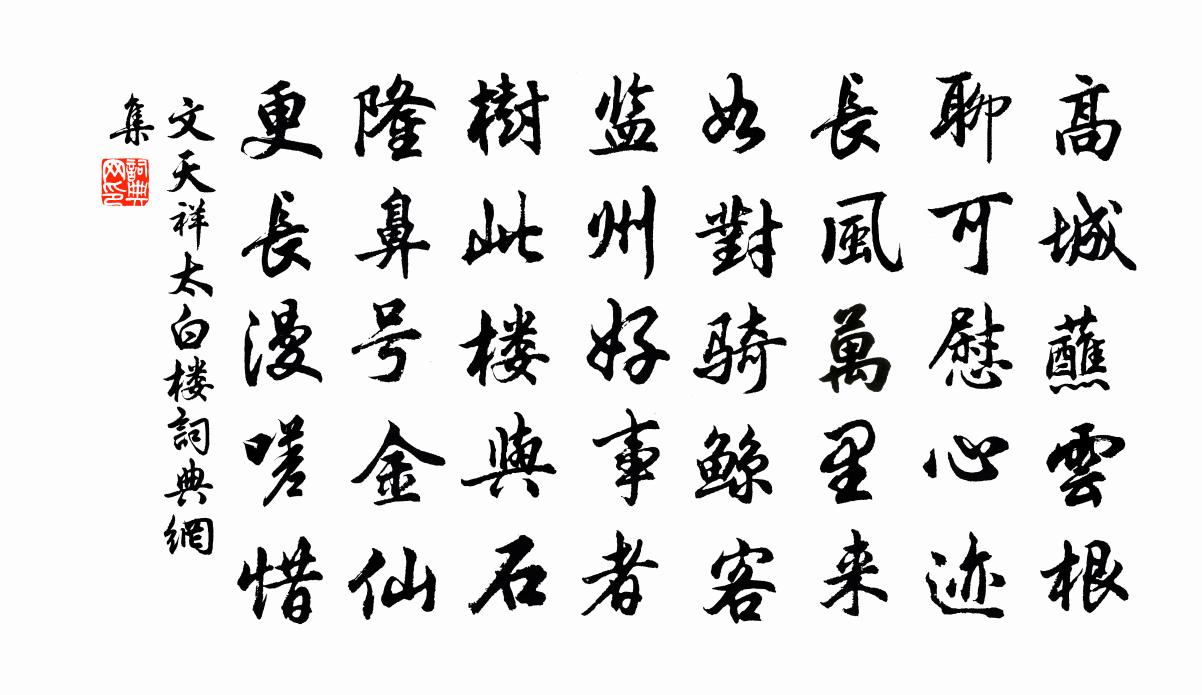 高城蘸雲根
聊可慰心迹
長風萬里来
如對骑鲸客
监州好事者
樹此楼與石
隆鼻号金仙
更長漫嗟惜
文天祥太白楼詞典網
集
詞典网印